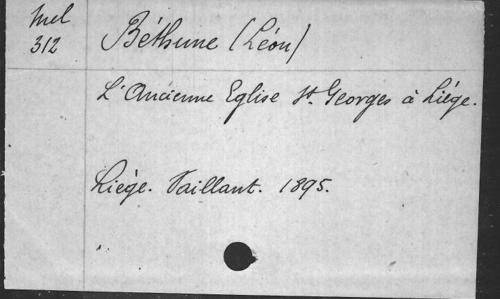 Mel
312
Béthune (Léon)
L'Ancienne Eglise St. Georges à Liège.
Liège. Vaillant. 1895.